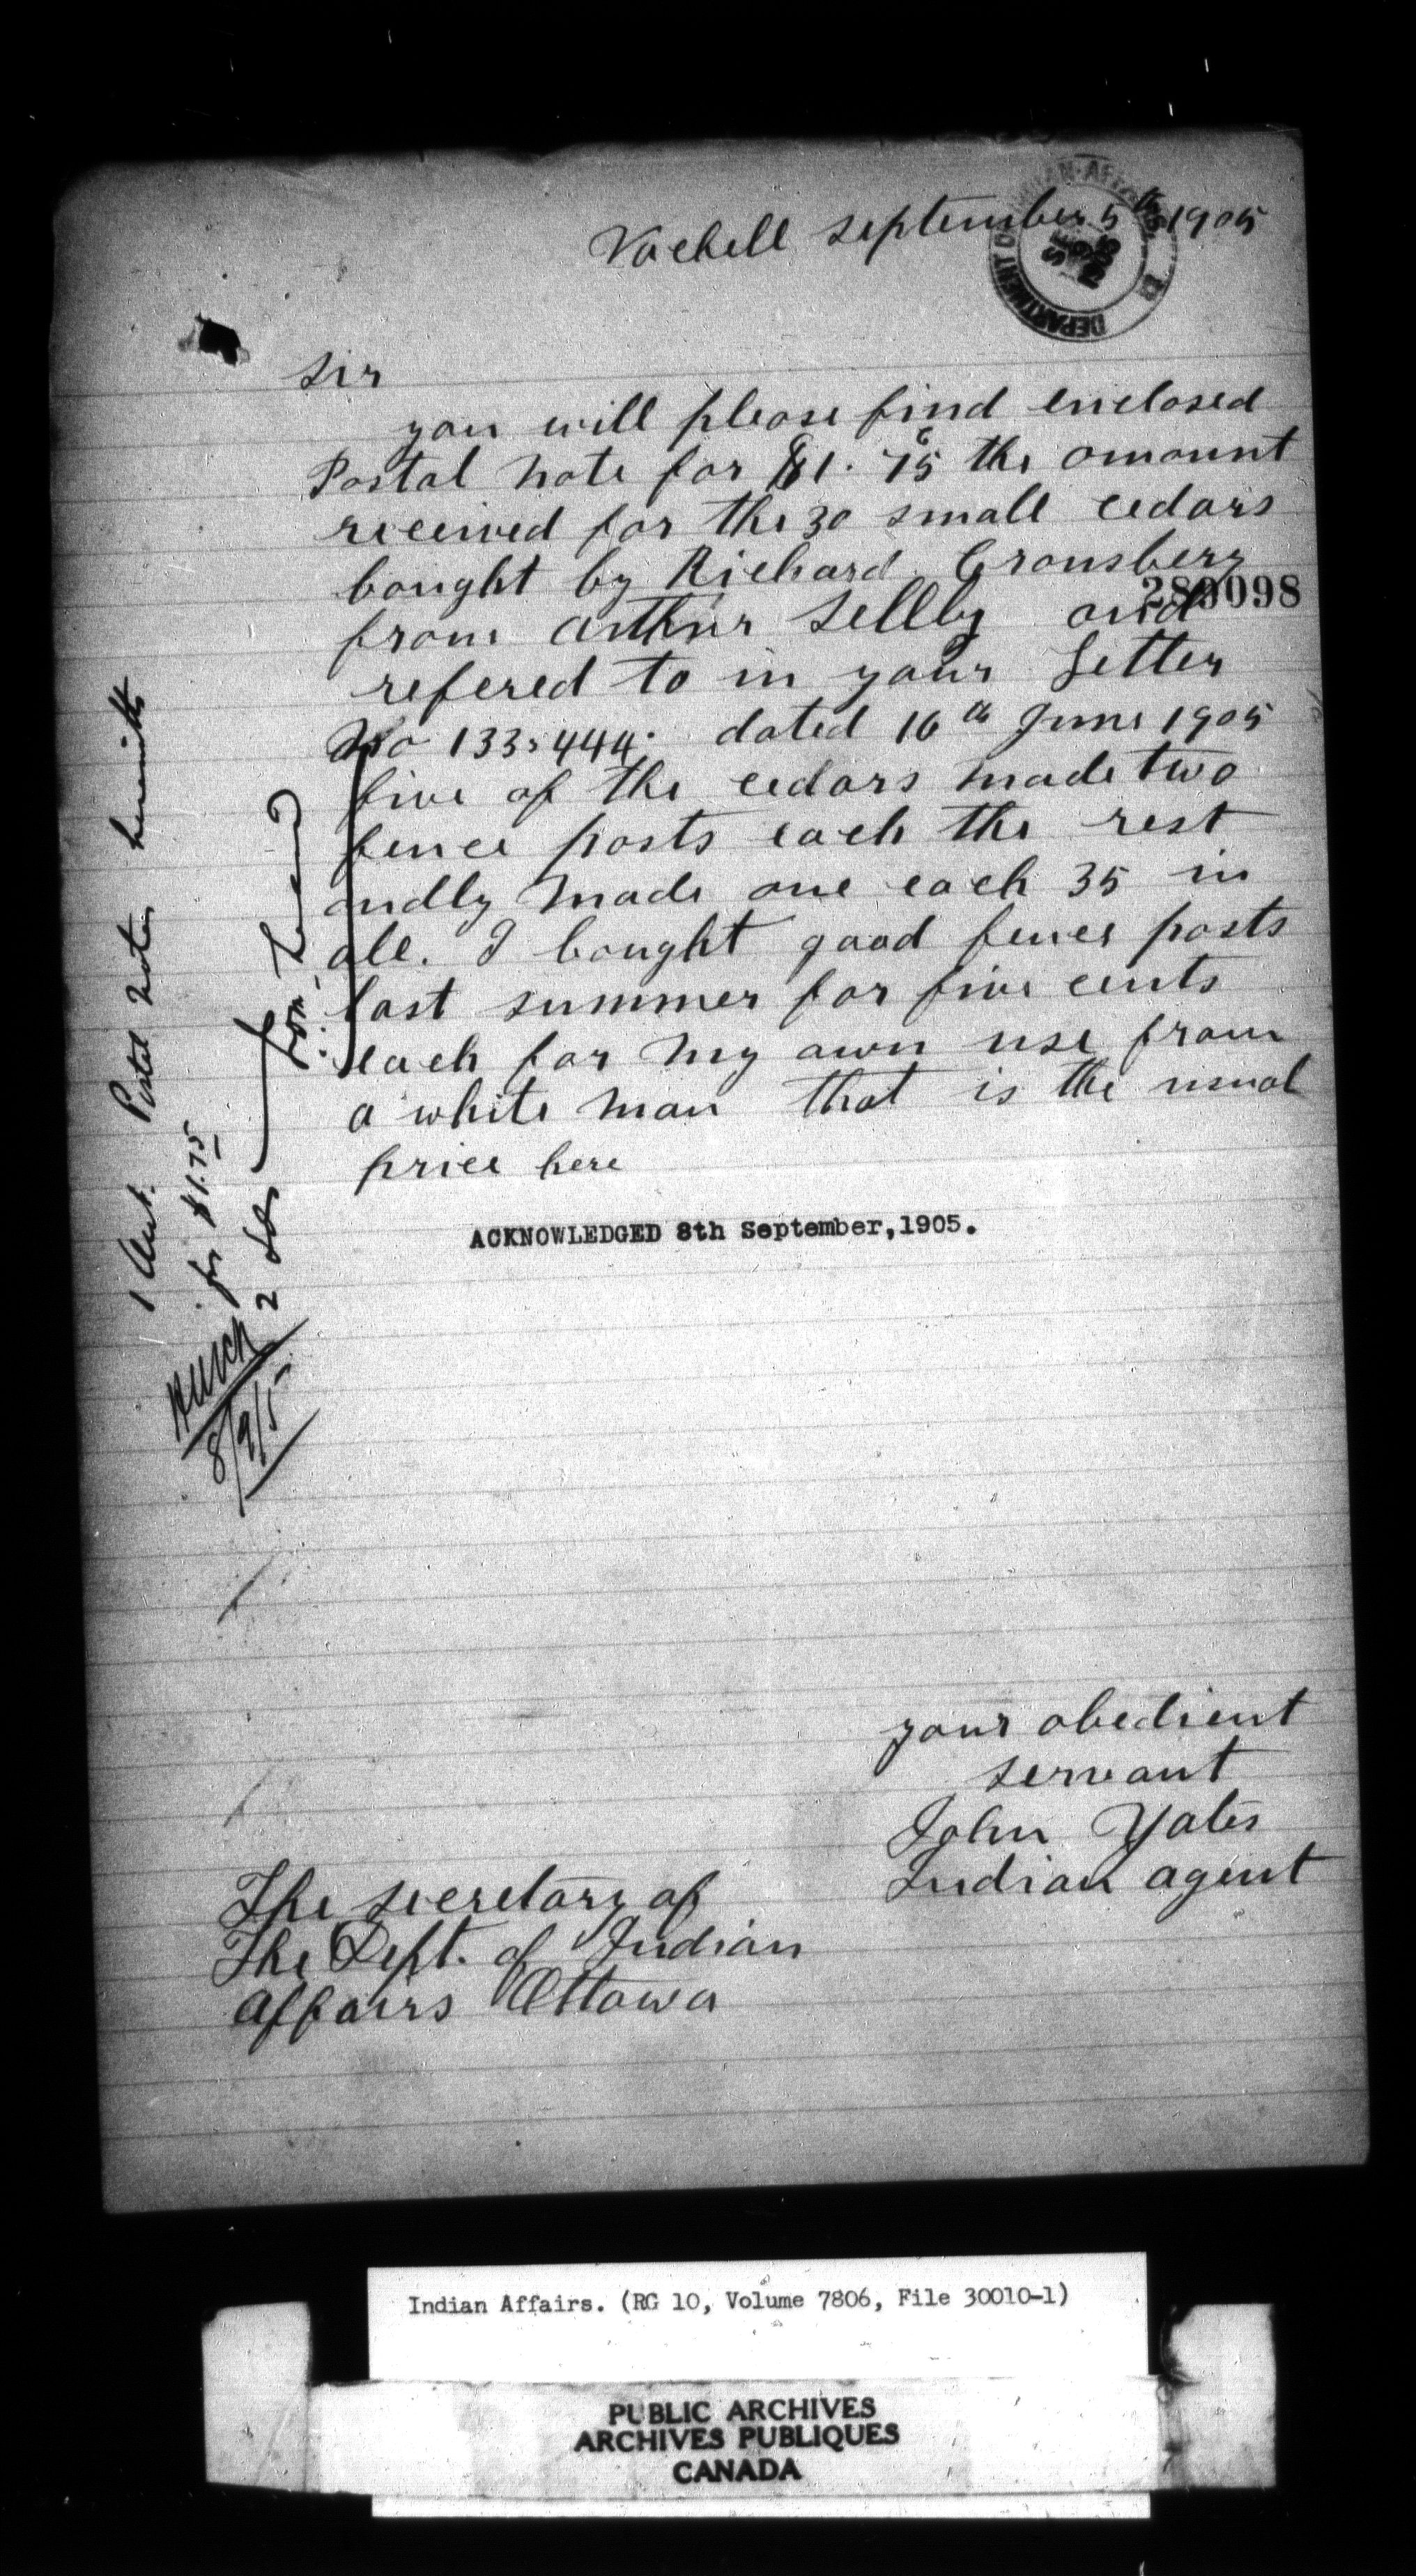 Vachell september 5th 1905
DEPARTMENT OF INDIAN AFFAIRS
SEP 1905
sir
you will please find enclosed
Postal note for $1.75 the amount
received for the 30 small cedars
bought by Richard Gronsberry
280098
from arthur Sellby and
refered to in your Letter
No 133,444. dated 16th June 1905
five of the cedars made two
fence posts each the rest
ondly made one each 35 in
all. I bought good fence posts
last summer for five cents
each for my own use from
a white man that is the usual
price here
ACKNOWLEDGED 8th September, 1905.
Postal note herewith
for $1.75
8/9/5
your obedient
servant
John Yates
Indian agent
The secretary of
The Dept. of Indian
affairs Ottawa
Indian Affairs. (RG 10, Volume 7806, File 30010-1)
PUBLIC ARCHIVES
ARCHIVES PUBLIQUES
CANADA